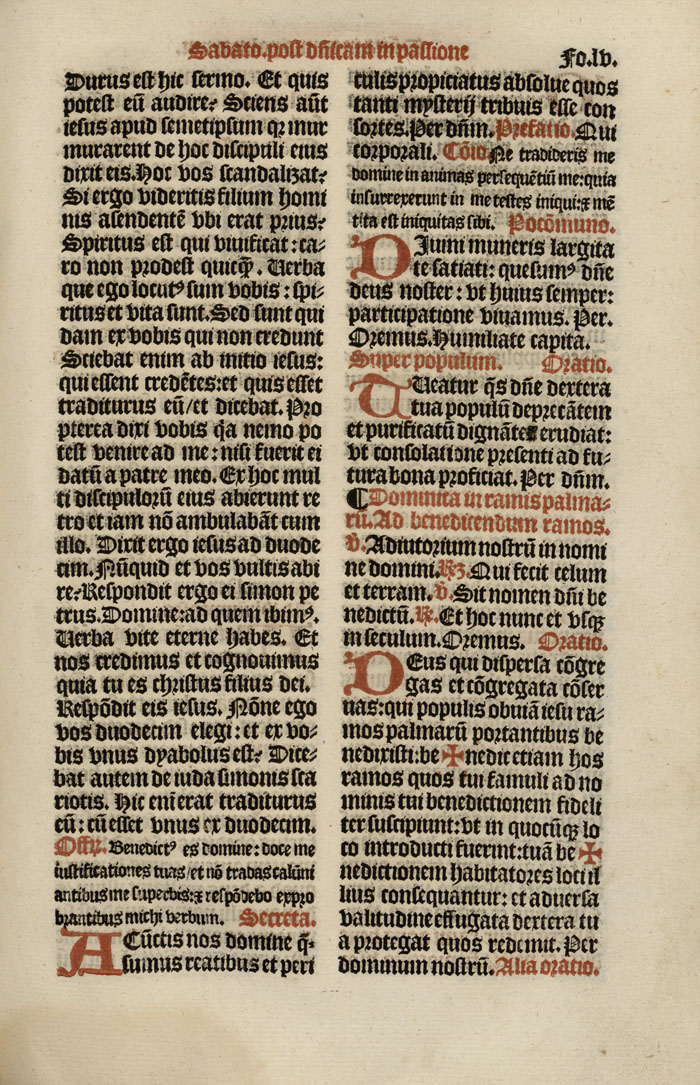 Sabato. post dn̄icam in passione
Fo.lv.
Durus est hic sermo. Et quis
potest eū audire? Sciens aūt
iesus apud semetipsum qꝛ mur
murarent de hoc discipuli eius
dixit eis. Hoc vos scandalizat?
Si ergo videritis filium homi
nis asendentē vbi erat prius?
Spiritus est qui viuificat: ca⸗
ro non prodest quicq̄. Uerba
que ego locutꝰ sum vobis: spi⸗
ritus et vita sunt. Sed sunt qui
dam ex vobis qui non credunt
Sciebat enim ab initio iesus:
qui essent credētes: et quis esset
traditurus eū/ et dicebat. Pro
pterea dixi vobis q̄a nemo po
test venire ad me: nisi fuerit ei
datū a patre meo. Ex hoc mul
ti discipulorū eius abierunt re
tro et iam nō ambulabāt cum
illo. Dixit ergo iesus ad duode
cim. Nūquid et vos vultis abi
re? Respondit ergo ei simon pe
trus. Domine: ad quem ibimꝰ.
Uerba vite eterne habes. Et
nos credimus et cognouimus
quia tu es christus filius dei.
Respōdit eis iesus. Nōne ego
vos duodecim elegi: et ex vo⸗
bis vnus dyabolus est? Dice⸗
bat autem de iuda simonis sca
riotis. Hic enī erat traditurus
eū: cū esset vnus ex duodecim.
Offr. Benedictꝰ es domine: doce me
iustificationes tuas/ et nō tradas calūni
antibus me superbis: ⁊ respōdebo expro
brantibus michi verbum. Secreta.
A Cūctis nos domine q̄⸗
sumus reatibus et peri
culis propiciatus absolue quos
tanti mysterij tribuis esse con
sortes. Per dn̄m. Prefatio. Qui
corporali. Cōio. Ne tradideris me
domine in animas persequētiū me: quia
insurrexerunt in me testes iniqui: ⁊ mē
tita est iniquitas sibi. Pocōmuno.
DIuini muneris largita
te satiati: quesumꝰ dn̄e
deus noster: vt huius semper:
participatione viuamus. Per.
Oremus. Humiliate capita.
Super populum. Oratio.
TUeatur q̄s dn̄e dextera
tua populū deprecātem
et purificatū dignātes erudiat:
vt consolatione presenti ad fu⸗
tura bona proficiat. Per dn̄m.
¶ Dominica in ramis palma⸗
rū. Ad benedicendum ramos.
℣. Adiutorium nostrū in nomi
ne domini. ℟. Qui fecit celum
et terram. ℣. Sit nomen dn̄i be
nedictū. ℟. Et hoc nunc et vsqꝫ
in seculum. Oremus. Oratio.
DEus qui dispersa cōgre
gas et cōgregata cōser
uas: qui populis obuiā iesu ra⸗
mos palmarū portantibus be
nedixisti: be ✠ nedic etiam hos
ramos quos tui famuli ad no
minis tui benedictionem fideli
ter suscipiunt: vt in quocūqꝫ lo
co introducti fuerint: tuā be ✠
nedictionem habitatores loci il
lius consequantur: et aduersa
valitudine effugata dextera tu
a protegat quos redemit. Per
dominum nostrū. Alia oratio.